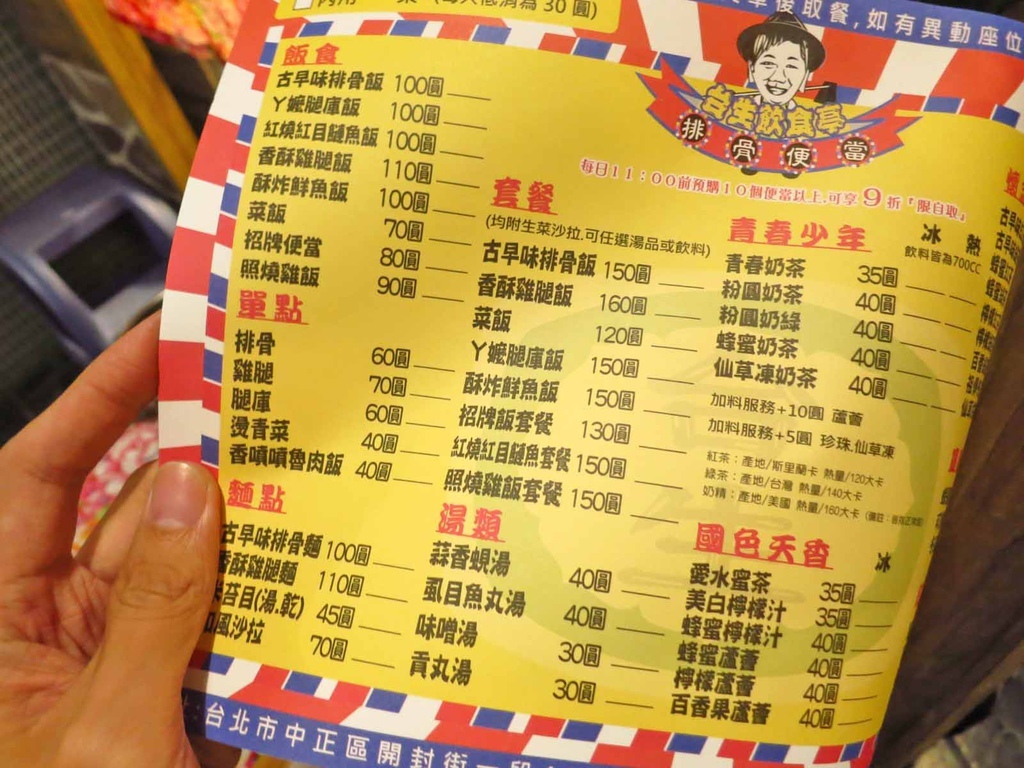 (每人低消為30圓)
後取餐,如有異動座位
台生飲食亭
排骨便當
每日11:00前預購10個便當以上,可享9折『限自取』
飯食
古早味排骨飯 100圓
ㄚ嬤腿庫飯 100圓
紅燒紅目鰱魚飯 100圓
香酥雞腿飯 110圓
酥炸鮮魚飯 100圓
菜飯 70圓
招牌便當 80圓
照燒雞飯 90圓
單點
排骨 60圓
雞腿 70圓
腿庫 60圓
燙青菜 40圓
香噴噴魯肉飯 40圓
麵點
古早味排骨麵 100圓
香酥雞腿麵 110圓
苔目(湯.乾) 45圓
風沙拉 70圓
套餐
(均附生菜沙拉.可任選湯品或飲料)
古早味排骨飯 150圓
香酥雞腿飯 160圓
菜飯 120圓
ㄚ嬤腿庫飯 150圓
酥炸鮮魚飯 150圓
招牌飯套餐 130圓
紅燒紅目鰱魚套餐 150圓
照燒雞飯套餐 150圓
湯類
蒜香蜆湯 40圓
虱目魚丸湯 40圓
味噌湯 30圓
貢丸湯 30圓
青春少年 冰 熱
飲料皆為700CC
青春奶茶 35圓
粉圓奶茶 40圓
粉圓奶綠 40圓
蜂蜜奶茶 40圓
仙草凍奶茶 40圓
加料服務+10圓 蘆薈
加料服務+5圓 珍珠.仙草凍
紅茶:產地/斯里蘭卡 熱量/120大卡
綠茶:產地/台灣 熱量/140大卡
奶精:產地/美國 熱量/160大卡
國色天香 冰
愛水蜜茶 35圓
美白檸檬汁 35圓
蜂蜜檸檬汁 40圓
蜂蜜蘆薈 40圓
檸檬蘆薈 40圓
百香果蘆薈 40圓
台北市中正區開封街一段